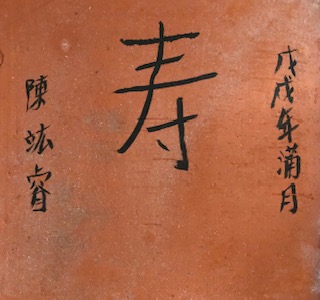 戊戌年蒲月
寿
陳竑睿